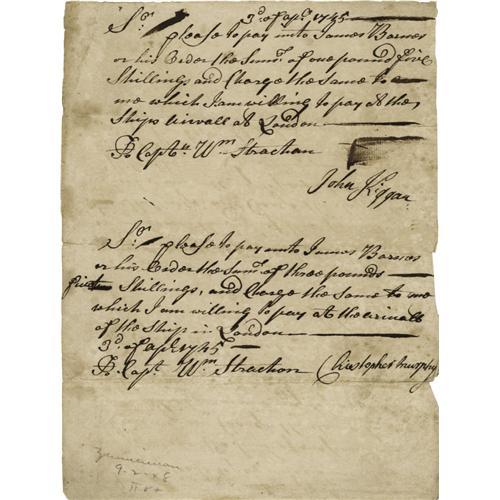 Sr. 3d. of Apl. 1745
please to pay unto James Barnes
or his Order the Sum of one pound five
Shillings and Charge the Same to
me which I am willing to pay at the
Ships Arivall at London
To Captn. Wm Strachan
John Kiggan
Sr. please to pay unto James Barnes
or his Order the Sum of three pounds
Shillings, and Charge the Same to me
which I am willing to pay at the arivall
of the Ship in London
3d. of Apl. 1745
To Capt. Wm Strachan Christopher Murphy
Zimmerman